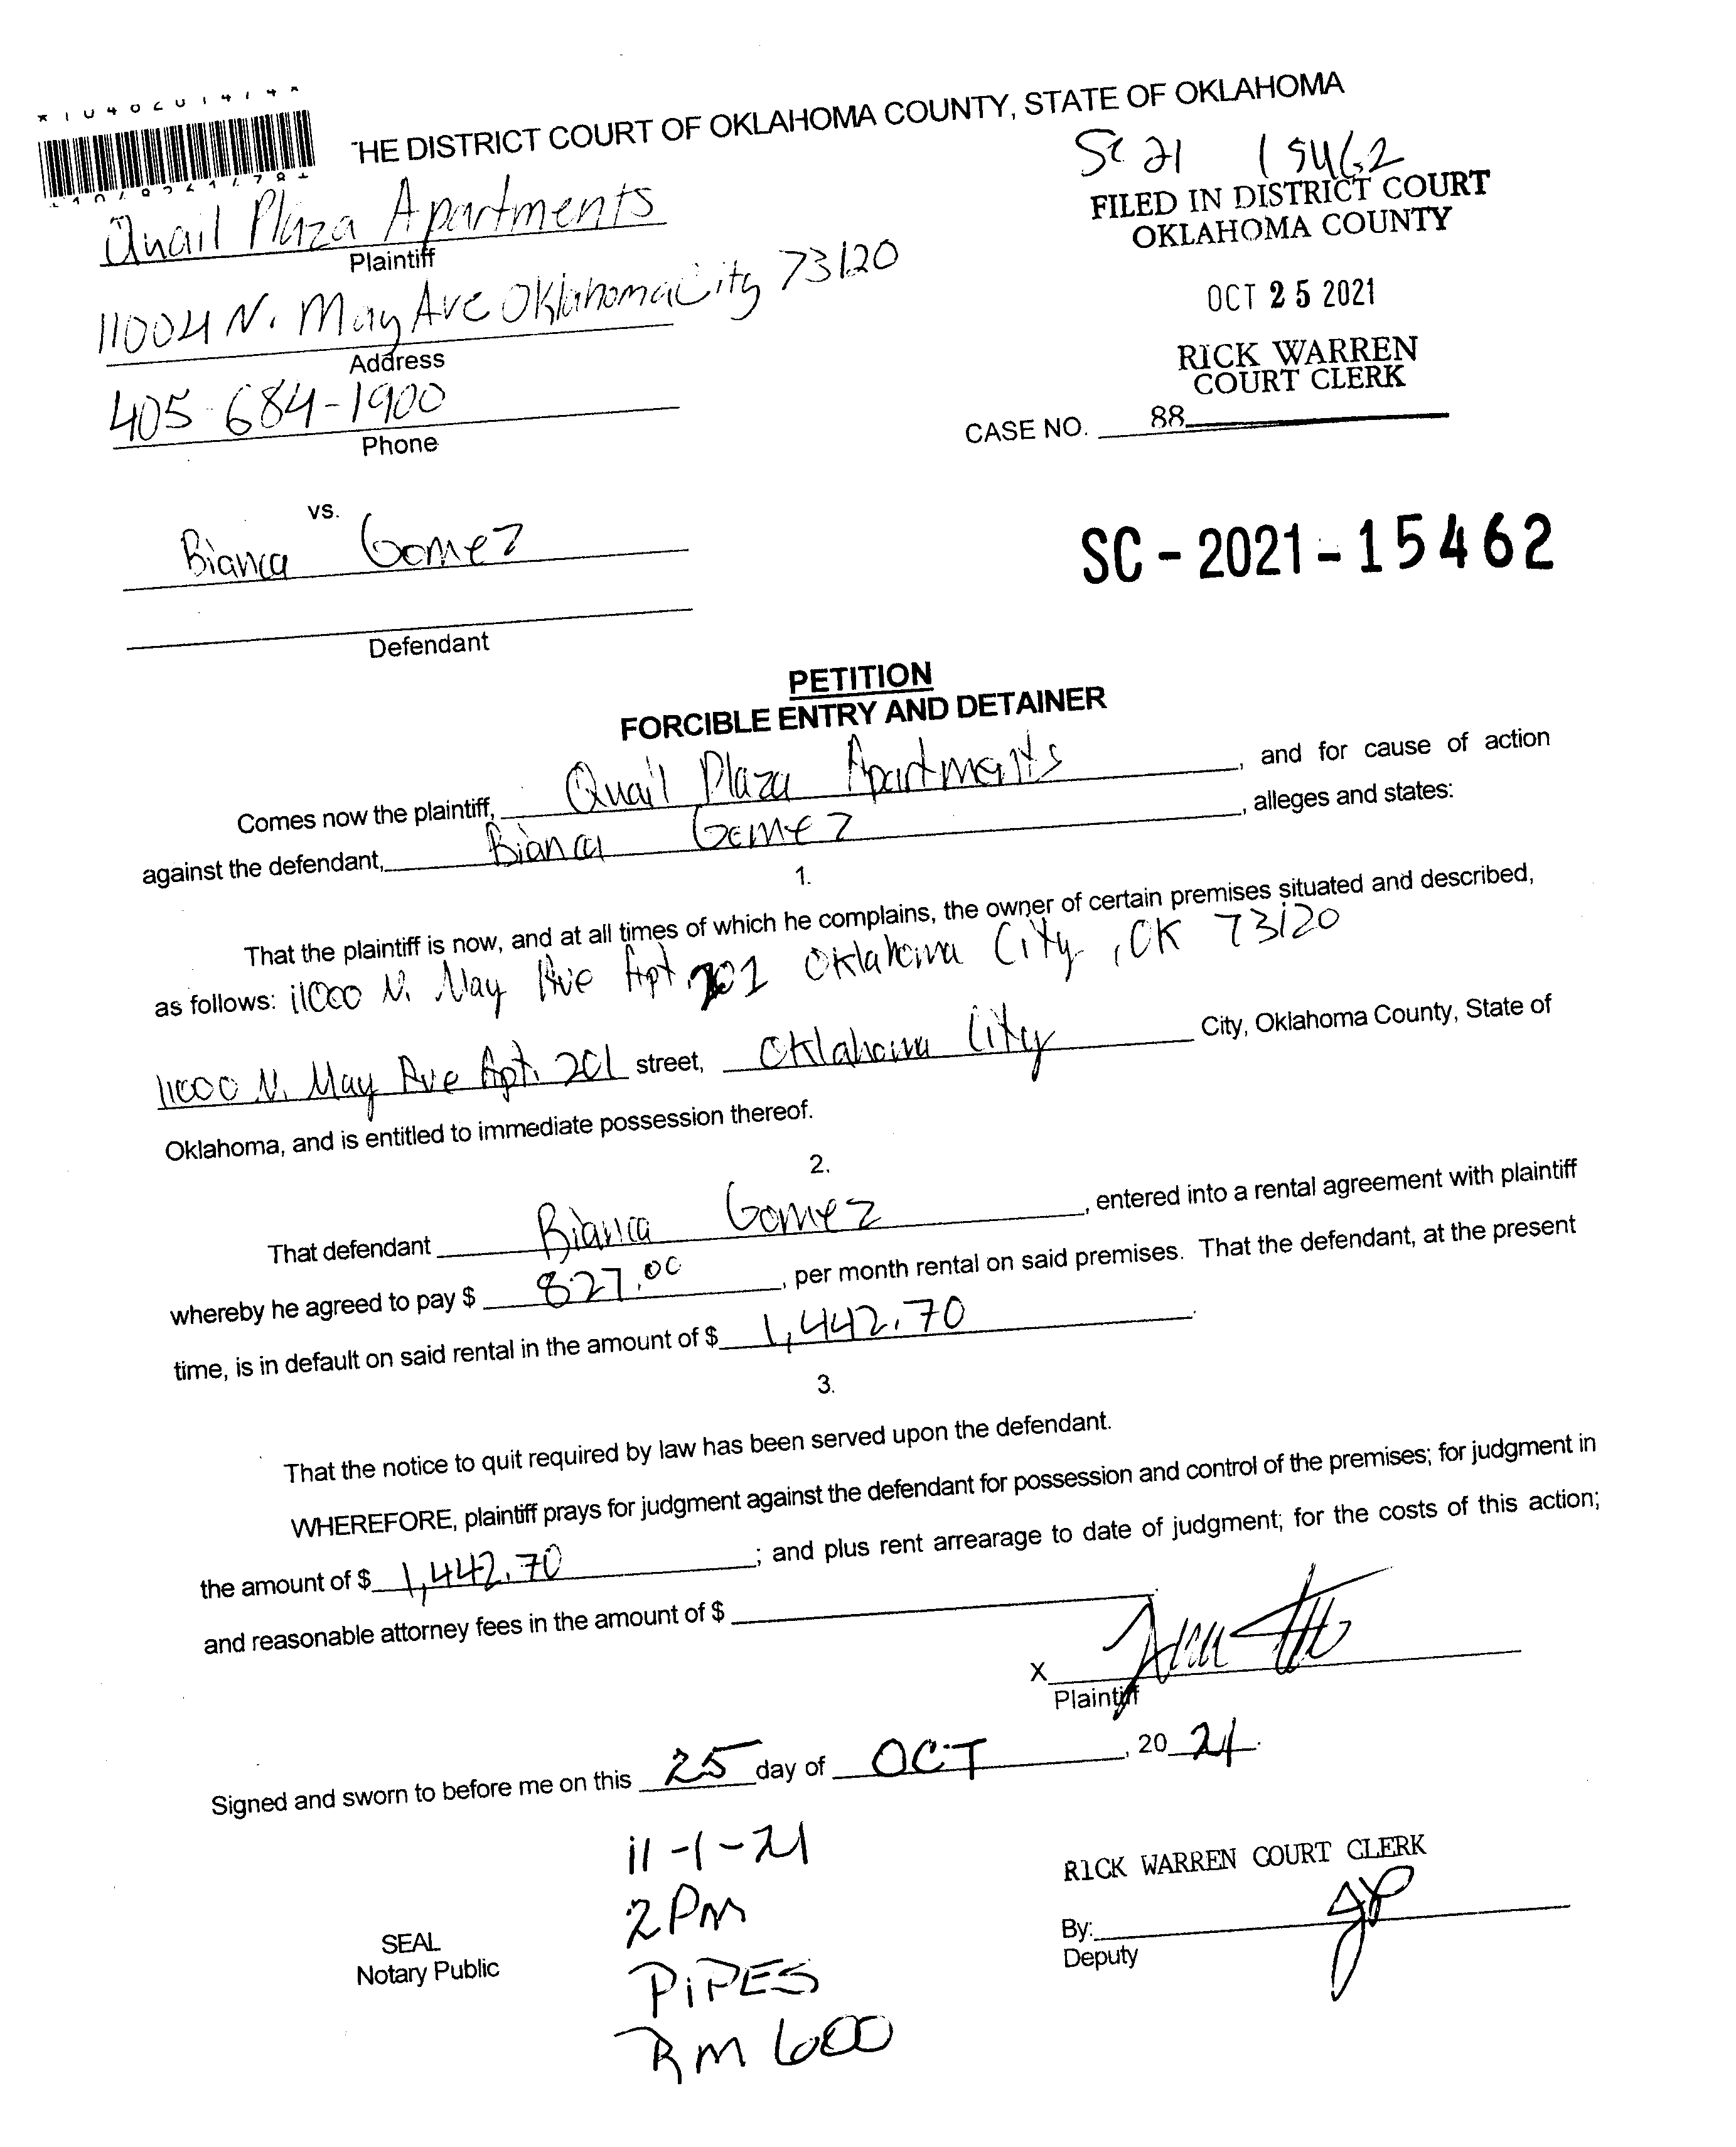 THE DISTRICT COURT OF OKLAHOMA COUNTY, STATE OF OKLAHOMA
SC 21 15462
FILED IN DISTRICT COURT
OKLAHOMA COUNTY
OCT 25 2021
RICK WARREN
COURT CLERK
Quail Plaza Apartments
Plaintiff
11004 N. May Ave Oklahoma City 73120
Address
405-684-1900
Phone
CASE NO. 88
vs.
Bianca Gomez
Defendant
SC-2021-15462
PETITION
FORCIBLE ENTRY AND DETAINER
Comes now the plaintiff, Quail Plaza Apartments, and for cause of action
against the defendant, Bianca Gomez, alleges and states:
1.
That the plaintiff is now, and at all times of which he complains, the owner of certain premises situated and described,
as follows: 11000 N. May Ave Apt. 201 Oklahoma City, OK 73120
11000 N. May Ave Apt. 201 street, Oklahoma City City, Oklahoma County, State of
Oklahoma, and is entitled to immediate possession thereof.
2.
That defendant Bianca Gomez, entered into a rental agreement with plaintiff
whereby he agreed to pay $ 827.00, per month rental on said premises. That the defendant, at the present
time, is in default on said rental in the amount of $ 1,442.70.
3.
That the notice to quit required by law has been served upon the defendant.
WHEREFORE, plaintiff prays for judgment against the defendant for possession and control of the premises; for judgment in
the amount of $ 1,442.70; and plus rent arrearage to date of judgment; for the costs of this action;
and reasonable attorney fees in the amount of $
X
Plaintiff
Signed and sworn to before me on this 25 day of OCT, 20 21.
11-1-21
2PM
PiPES
RM 600
SEAL
Notary Public
RICK WARREN COURT CLERK
By:
Deputy